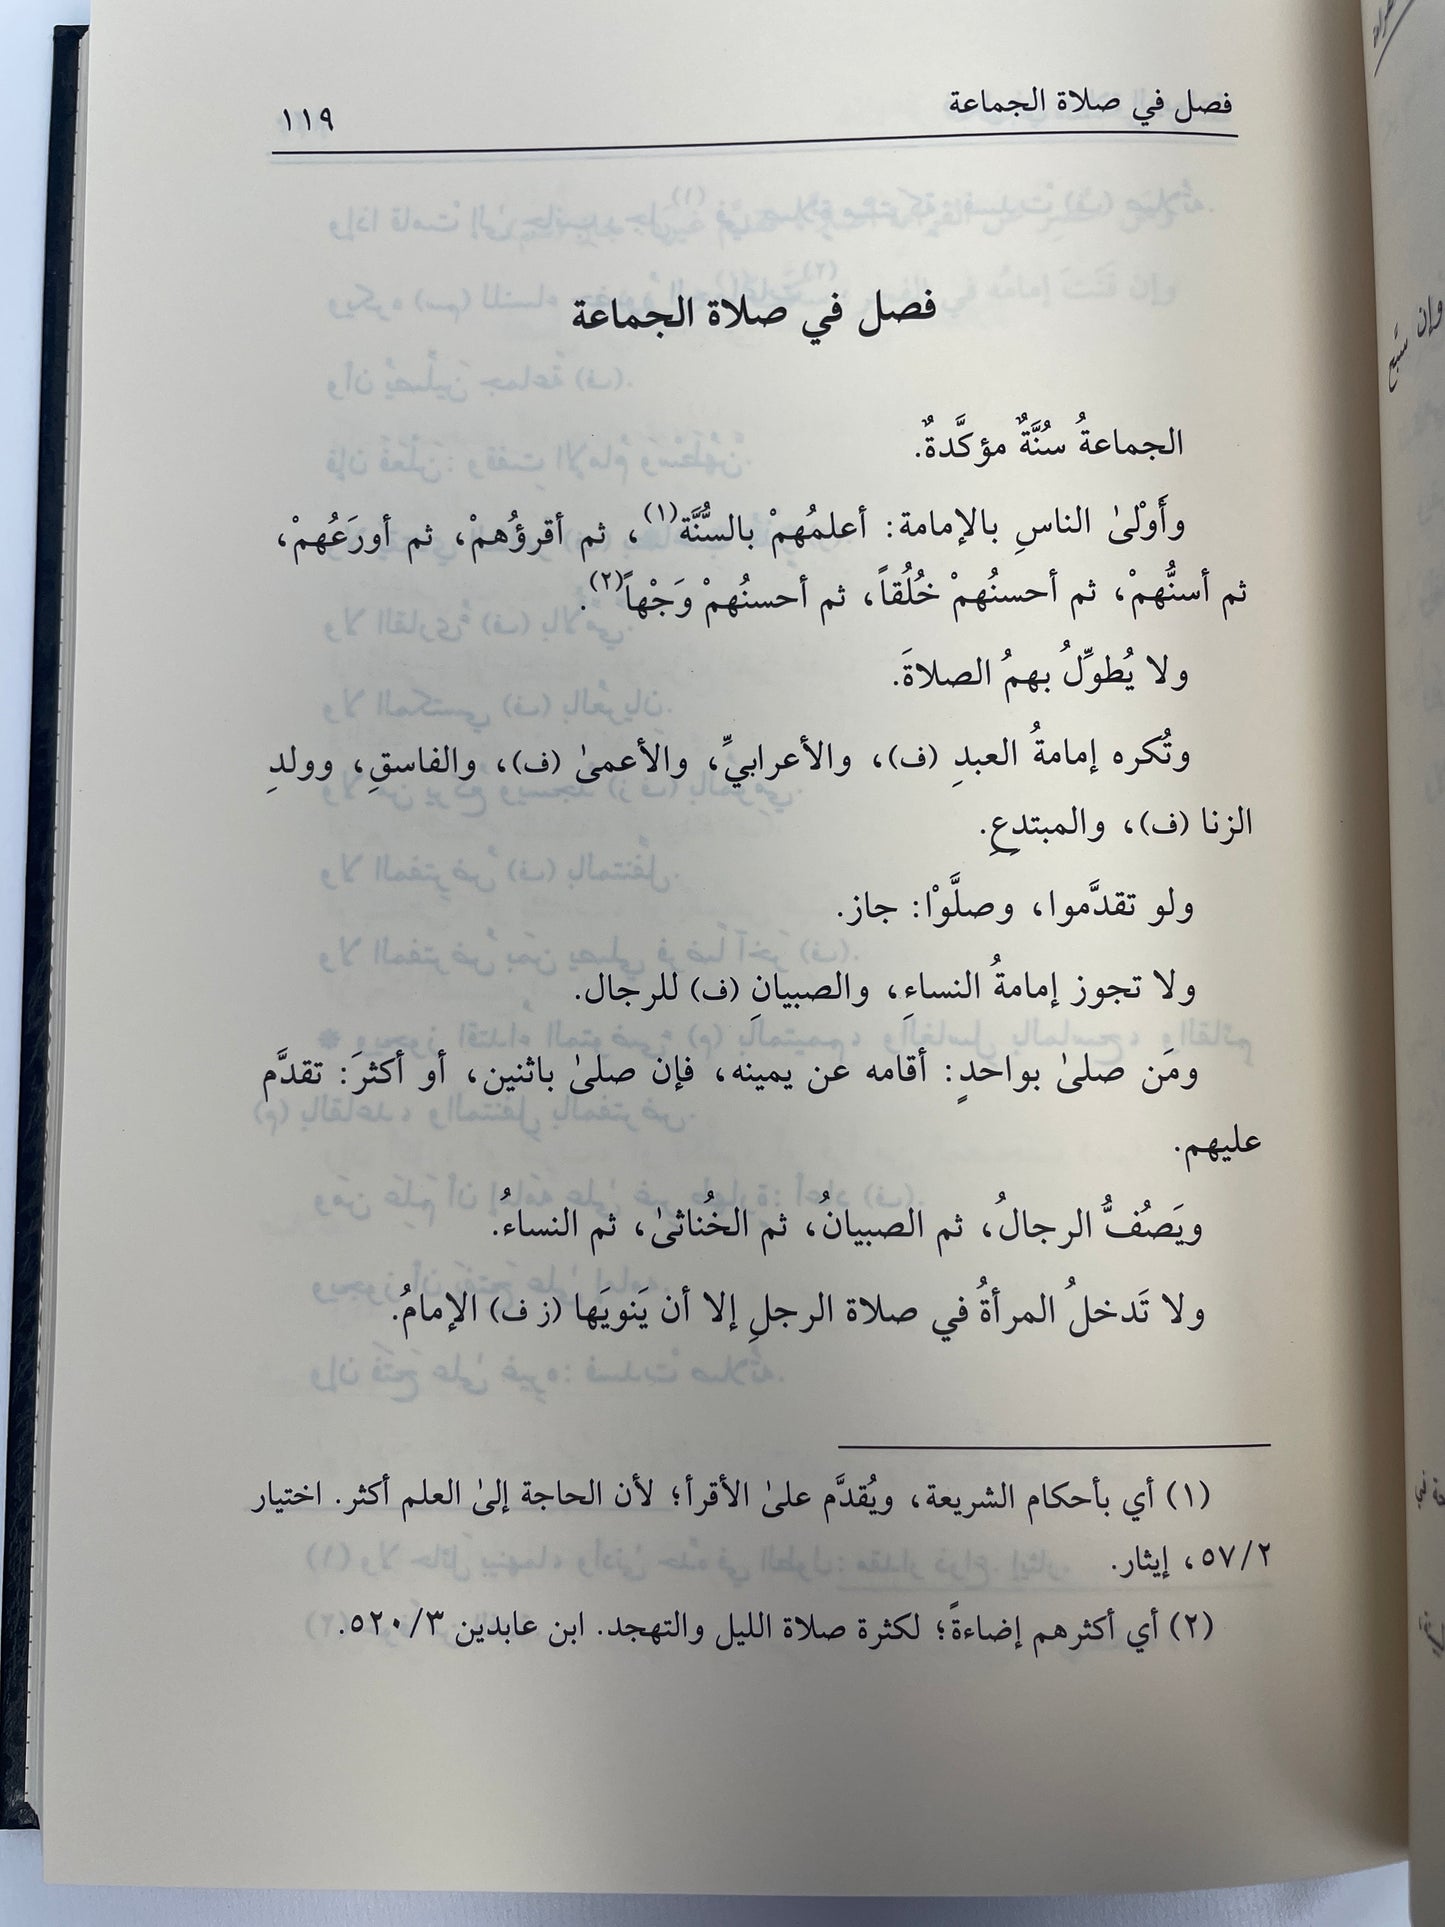 فصل في صلاة الجماعة
١١٩
فصل في صلاة الجماعة
الجماعةُ سُنَّةٌ مؤكَّدةٌ.
وأَوْلىٰ الناسِ بالإمامة: أعلمُهمْ بالسُّنَّة(١)، ثم أقرؤُهمْ، ثم أورَعُهمْ،
ثم أسنُّهمْ، ثم أحسنُهمْ خُلُقاً، ثم أحسنُهمْ وَجْهاً(٢).
ولا يُطوِّلُ بهمُ الصلاةَ.
وتُكره إمامةُ العبدِ (ف)، والأعرابيِّ، والأعمىٰ (ف)، والفاسقِ، وولدِ
الزنا (ف)، والمبتدعِ.
ولو تقدَّموا، وصلَّوْا: جاز.
ولا تجوز إمامةُ النساءِ، والصبيانِ (ف) للرجال.
ومَن صلىٰ بواحدٍ: أقامه عن يمينه، فإن صلىٰ باثنين، أو أكثرَ: تقدَّم
عليهم.
ويَصُفُّ الرجالُ، ثم الصبيانُ، ثم الخُناثىٰ، ثم النساءُ.
ولا تَدخلُ المرأةُ في صلاة الرجلِ إلا أن يَنويَها (ز ف) الإمامُ.
(١) أي بأحكام الشريعة، ويُقدَّم علىٰ الأقرأ؛ لأن الحاجة إلىٰ العلم أكثر. اختيار
٥٧/٢، إيثار.
(٢) أي أكثرهم إضاءةً؛ لكثرة صلاة الليل والتهجد. ابن عابدين ٥٢٠/٣.
وإن سبَّح